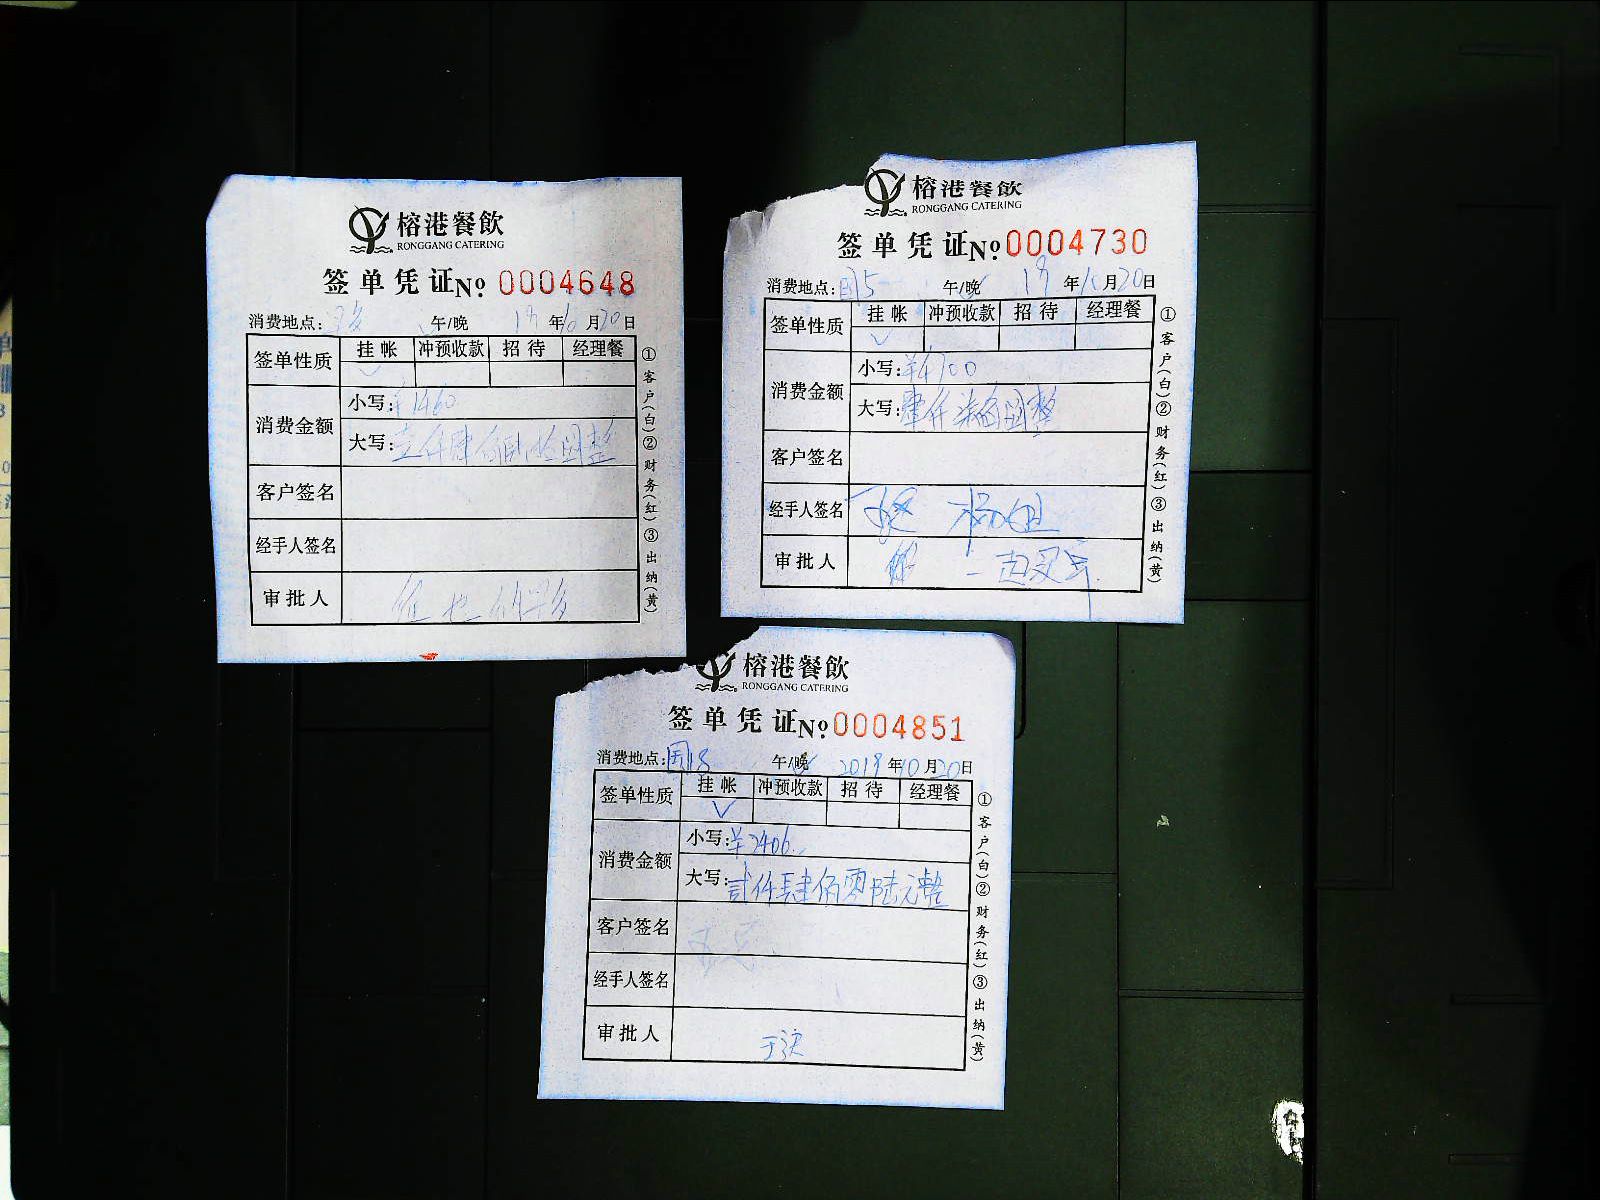 榕港餐飲
RONGGANG CATERING
签单凭证№ 0004648
消费地点: 午/晚 19年10月20日
签单性质 挂帐 冲预收款 招待 经理餐
消费金额 小写:¥1460
大写:壹仟肆佰陆拾圆整
客户签名
经手人签名
审批人
①客户(白)②财务(红)③出纳(黄)
榕港餐飲
RONGGANG CATERING
签单凭证№ 0004730
消费地点: 午/晚 19年10月20日
签单性质 挂帐 冲预收款 招待 经理餐
消费金额 小写:¥4700
大写:肆仟柒佰圆整
客户签名
经手人签名
审批人
①客户(白)②财务(红)③出纳(黄)
榕港餐飲
RONGGANG CATERING
签单凭证№ 0004851
消费地点: 午/晚 2019年10月20日
签单性质 挂帐 冲预收款 招待 经理餐
消费金额 小写:¥2406
大写:贰仟肆佰零陆元整
客户签名
经手人签名
审批人
①客户(白)②财务(红)③出纳(黄)